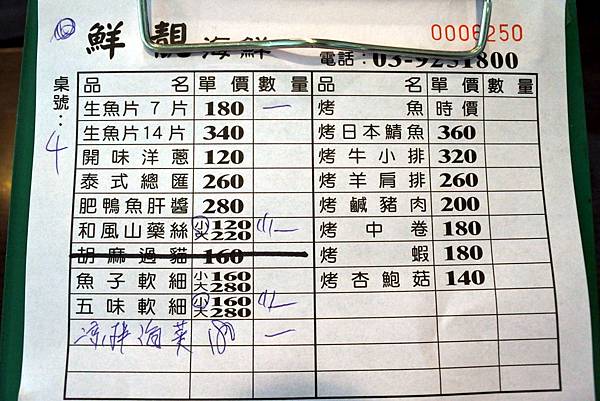 鮮靚海鮮 0006250
電話：03-9251800
桌號：4
品名 單價 數量 品名 單價 數量
生魚片7片 180 一 烤魚 時價
生魚片14片 340 烤日本鯖魚 360
開味洋蔥 120 烤牛小排 320
泰式總匯 260 烤羊肩排 260
肥鴨魚肝醬 280 烤鹹豬肉 200
和風山藥絲 小120 大220 小一 烤中卷 180
胡麻過貓 160 烤蝦 180
魚子軟細 小160 大280 烤杏鮑菇 140
五味軟細 小160 大280 小一
涼拌海菜 180 一